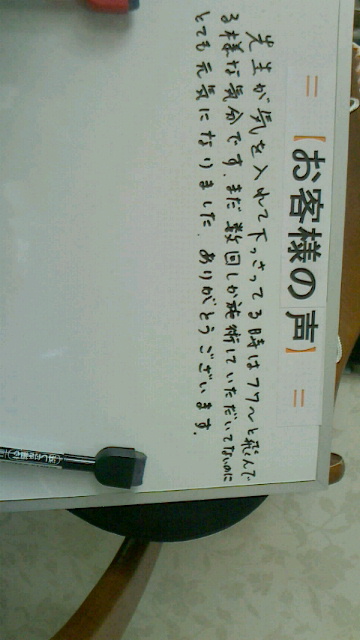 = 【お客様の声】 =
先生が気を入れて下さってる時はフワ〜と飛んで
る様な気分です。まだ数回しか施術していただいてないのに
とても元気になりました。ありがとうございます。